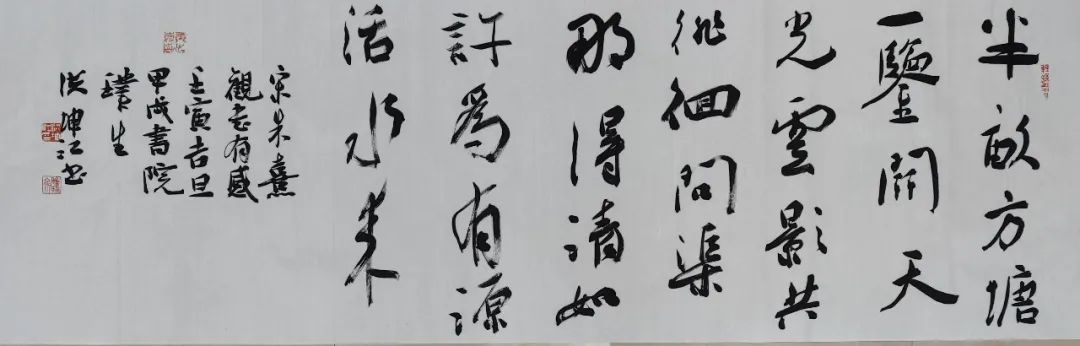 半畝方塘
一鑒開天
光雲影共
徘徊問渠
那得清如
許為有源
活水来
宋朱熹
觀書有感
壬寅吉旦
甲成書院
璞生
洪坤江书